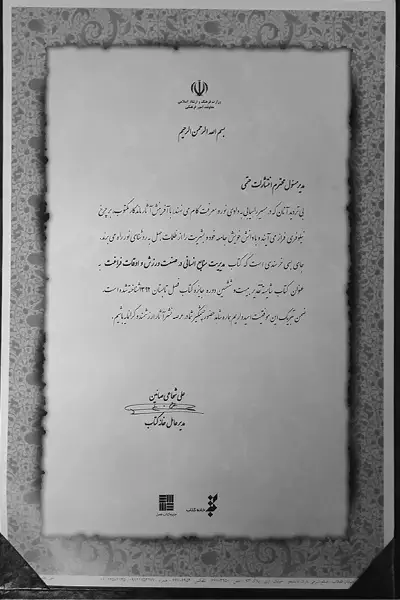 وزارت فرهنگ و ارشاد اسلامی
معاونت امور فرهنگی
بسم الله الرحمن الرحیم
مدیر مسئول محترم انتشارات حتمی
بی تردید آنان که در مسیر دستیابی به وادی نور و معرفت گام می نهند، با آفرینش آثار ماندگار مکتوب بر چرخ
نیلوفری فراز می آیند و با دانش خویش جامعه خود و بشریت را از ظلمات جهل به روشنای نور راه می برند.
جای بسی خرسندی است که کتاب مدیریت منابع انسانی در صنعت ورزش و اوقات فراغت به
عنوان کتاب شایسته تقدیر بیست و ششمین دوره جایزه کتاب فصل تابستان ۱۳۹۲ شناخته شده است.
ضمن تبریک این موفقیت امید داریم همواره شاهد حضور چشمگیر شما در عرصه نشر آثار ارزشمند و گرانمایه باشیم.
علی شجاعی صائین
مدیر عامل خانه کتاب
خانه کتاب